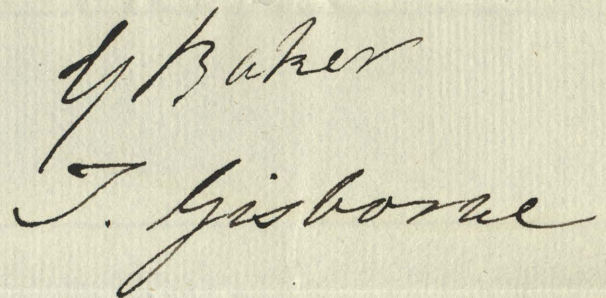 G Baker
T. Gisborne